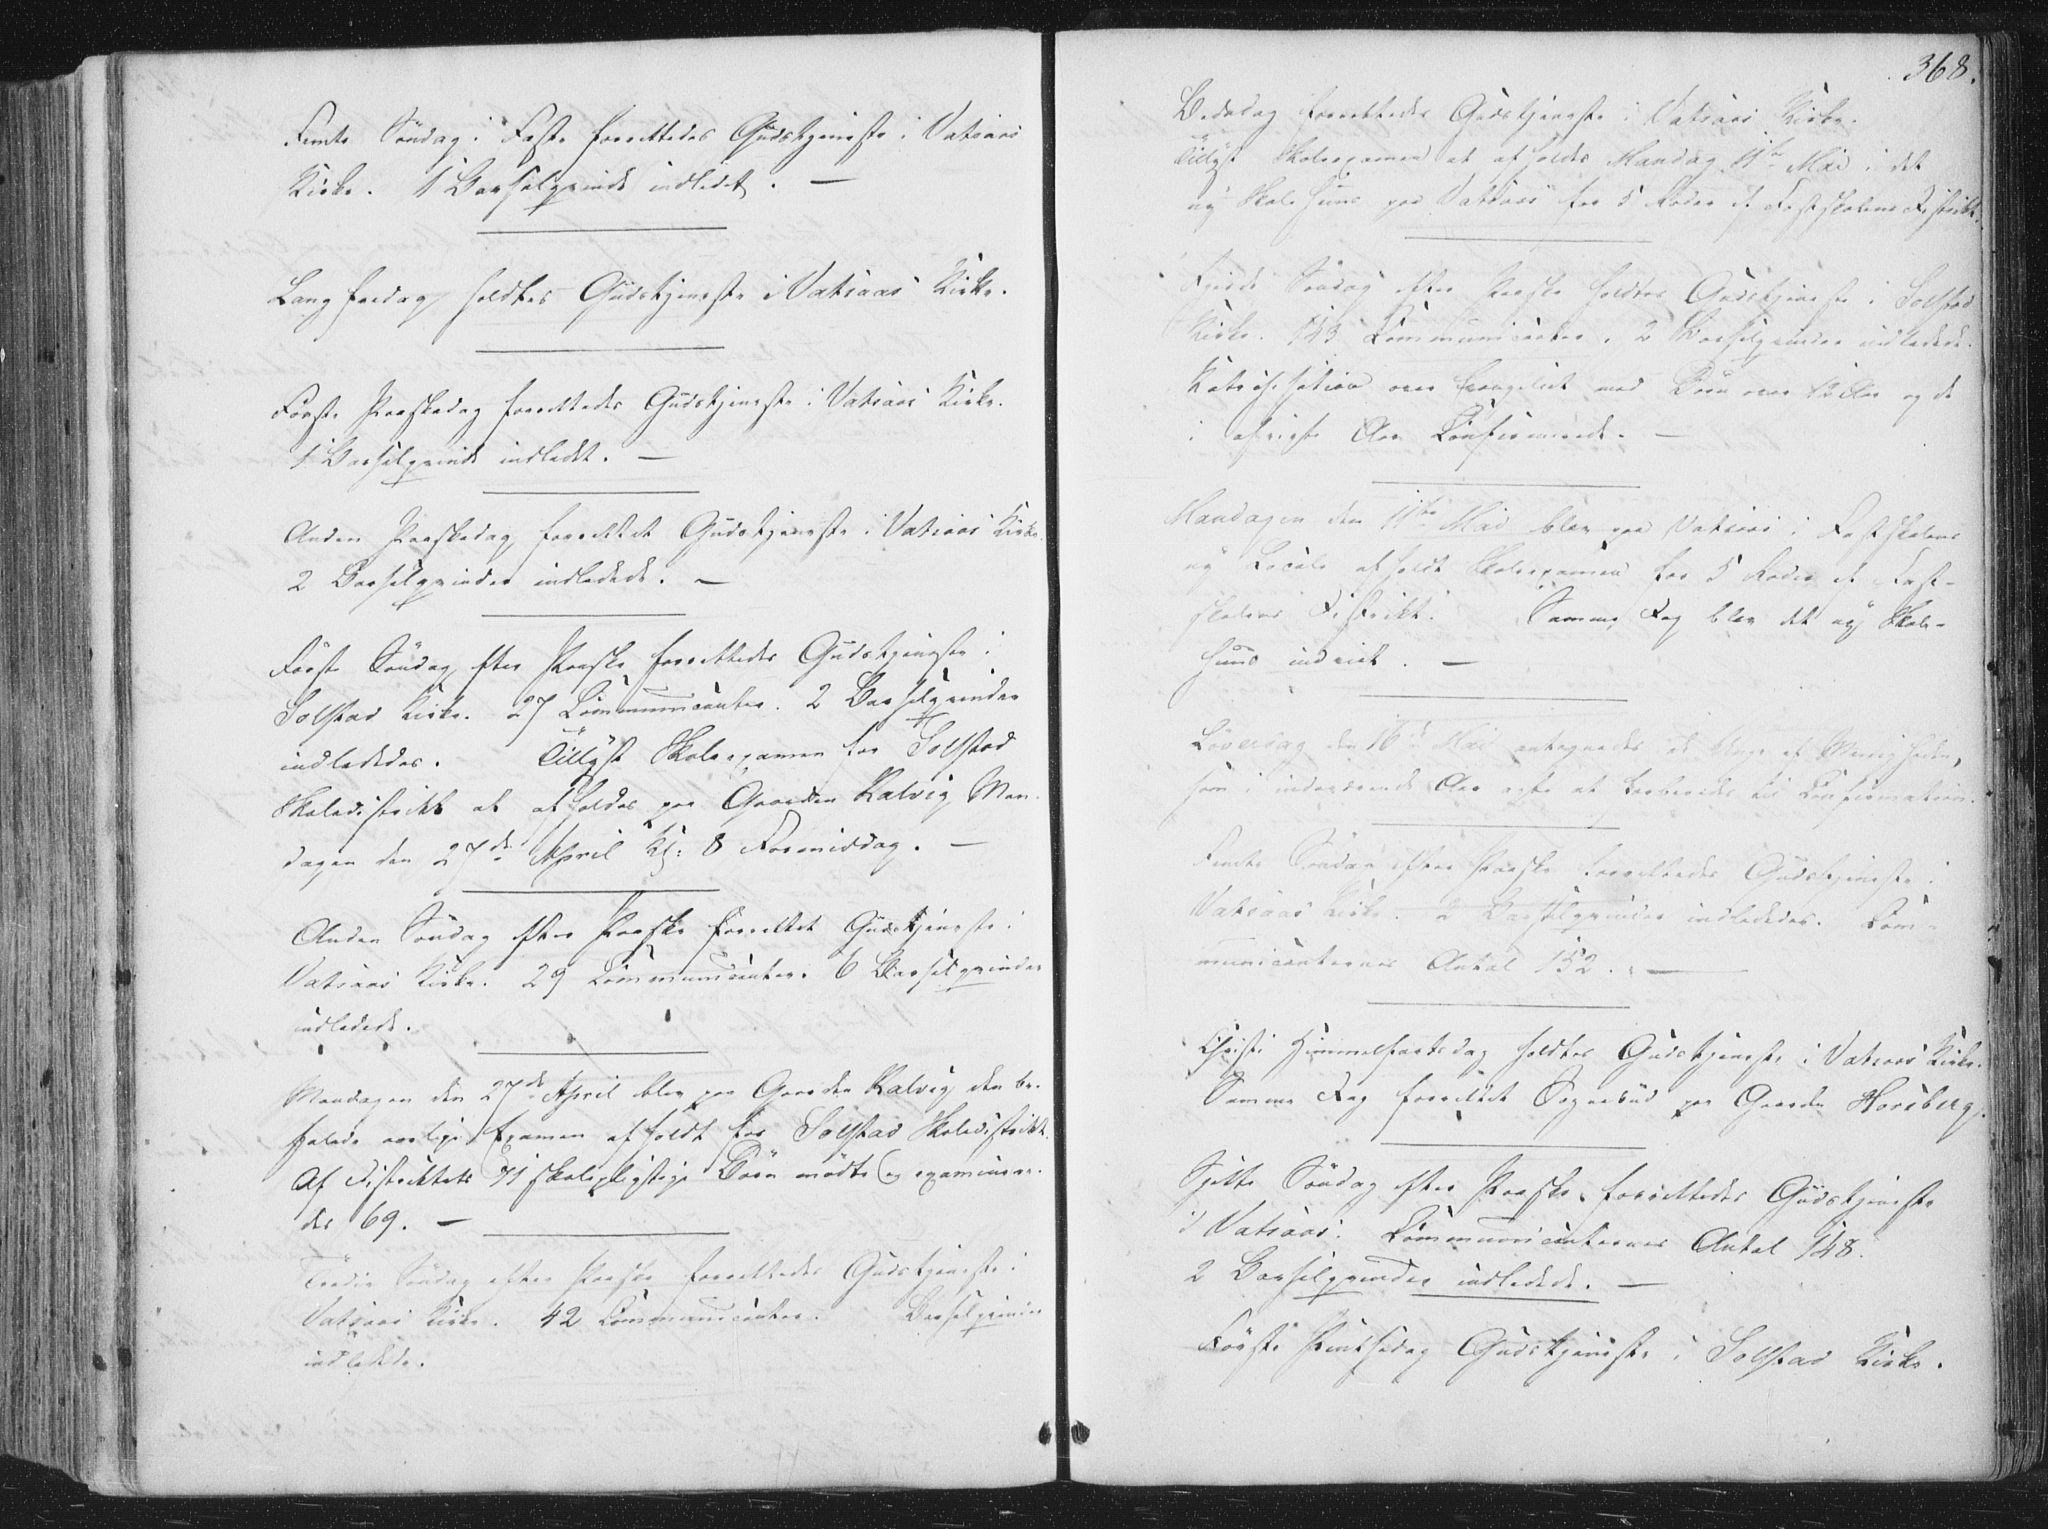 Femte Söndag i Faste forrettedes Gudstjeneste i Vatsaas
Kirke. 1 Barselqvinde indledet. —
Langfredag holdtes Gudstjeneste i Vatsaas Kirke.
Første Paaskedag forrettedes Gudstjeneste i Vatsaas Kirke.
1 Barselqvinde indledet. —
Anden Paaskedag forrettet Gudstjeneste i Vatsaas Kirke.
2 Barselqvinder indledede. —
Første Söndag efter Paaske forrettedes Gudstjeneste i
Solstad Kirke. 27 Communicanter. 2 Barselqvinder
indlededes. Tillyst Skoleexamen for Solstad
Skoledistrikt at afholdes paa Gaarden Kalvig Man-
dagen den 27de April Kl: 8 Formiddag. —
Anden Söndag efter Paaske forrettet Gudstjeneste i
Vatsaas Kirke. 29 Communicanter. 6 Barselqvinder
indledede.
Mandagen den 27de April blev paa Gaarden Kalvig den be-
falede aarlige Examen afholdt for Solstad Skoledistrikt.
Af Distriktets 71 skolepligtige Börn mødte og examinere-
des 69. —
Tredie Söndag efter Paaske forrettedes Gudstjeneste i
Vatsaas Kirke. 42 Communicanter. Barselqvinder
indledede.
368.
Bededag forrettedes Gudstjeneste i Vatsaas Kirke.
Tillyst Skoleexamen at afholdes Mandag 11te Mai i det
ny Skolehuus paa Vatsaas for 5 Roder af Fastskolens Distrikt.
Fjerde Söndag efter Paaske holdtes Gudstjeneste i Solstad
Kirke. 143 Communicanter. 2 Barselqvinder indledede.
Katechisation over Evangeliet med Börn over 12 Aar og de
i afvigte Aar Confirmerede. —
Mandagen den 11te Mai blev paa Vatsaas i Fastskolens
ny Locale afholdt Skoleexamen for 5 Roder af Fast-
skolens Distrikt. Samme Dag blev det ny Skole-
huus indviet. —
Löverdag den 16de Mai antegnedes de Unge af Menigheden,
som indeværende Aar agte at forberedes til Confirmation.
Femte Söndag efter Paaske forrettedes Gudstjeneste i
Vatsaas Kirke. 2 Barselqvinder indlededes. Com-
municanternes Antal 152. —
Christi Himmelfartsdag holdtes Gudstjeneste i Vatsaas Kirke.
Samme Dag forrettet Sognebud paa Gaarden Horsberg.
Sjette Söndag efter Paaske forrettedes Gudstjeneste
i Vatsaas. Communicanternes Antal 148.
2 Barselqvinder indledede. —
Første Pintsedag Gudstjeneste i Solstad Kirke.